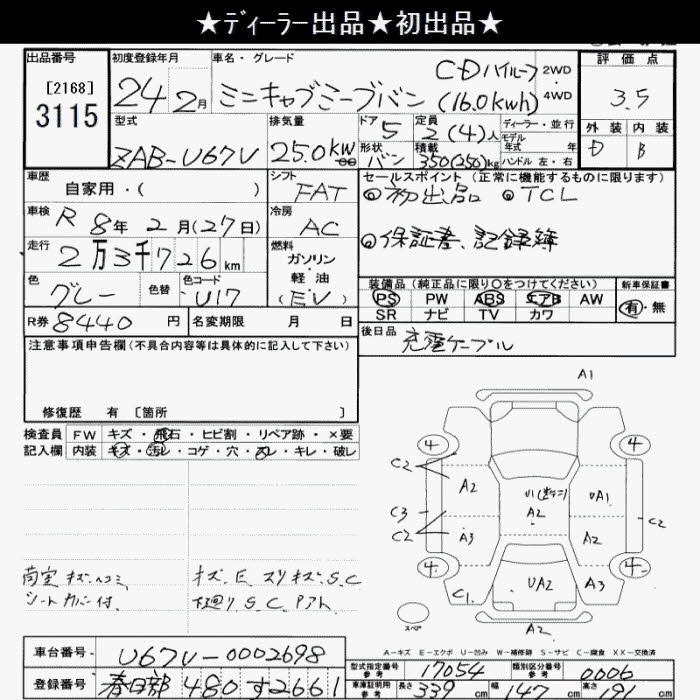 ★ディーラー出品★初出品★
出品番号
[2168]
3115
初度登録年月
24 2月
車名・グレード
CDハイルーフ
ミニキャブミーブバン (16.0kwh)
2WD
4WD
評価点
3.5
外装 内装
D B
型式
ZAB-U67V
排気量
25.0kw
ドア
5
形状
バン
定員
2(4)人
積載
350(250)kg
ディーラー・並行
モデル
年式 年
ハンドル 左・右
車歴
自家用・( )
シフト
FAT
車検
R 8年2月(27日)
冷房
AC
走行
2万3千726km
燃料
ガソリン
・
軽油
(EV)
色
グレー
色替
色コード
U17
R券 8440円
名変期限 月 日
セールスポイント (正常に機能するものに限ります)
◎初出品 ◎TCL
◎保証書、記録簿
装備品(純正品に限り〇をつけてください)
PS PW ABS エアB AW
SR ナビ TV カワ
新車保証書
有・無
後日品
充電ケーブル
注意事項申告欄(不具合内容等は具体的に記入して下さい)
修復歴 有 [箇所 ]
検査員
記入欄
FW キズ・飛石・ヒビ割・リペア跡・×要
内装 キズ・汚レ・コゲ・穴・スレ・キレ・破レ
荷室 キズ.ヘコミ
シートカバー付.
キズ、E、スリキズ、S.C
下廻り S.C.Pアト.
A1
4
4
C2
A2
A2
A1
C3
C2
C2
A3
A2
4
4
UA2
A3
C1
A2
スペア
A-キズ E-エクボ U-凹み W-補修跡 S-サビ C-腐食 XX-交換済
車台番号
U67V-0002698
登録番号
春日部 480 す2661
型式指定番号
参考
17054
類別区分番号
参考
0006
車庫証明用
参考
長さ
339cm
幅
147cm